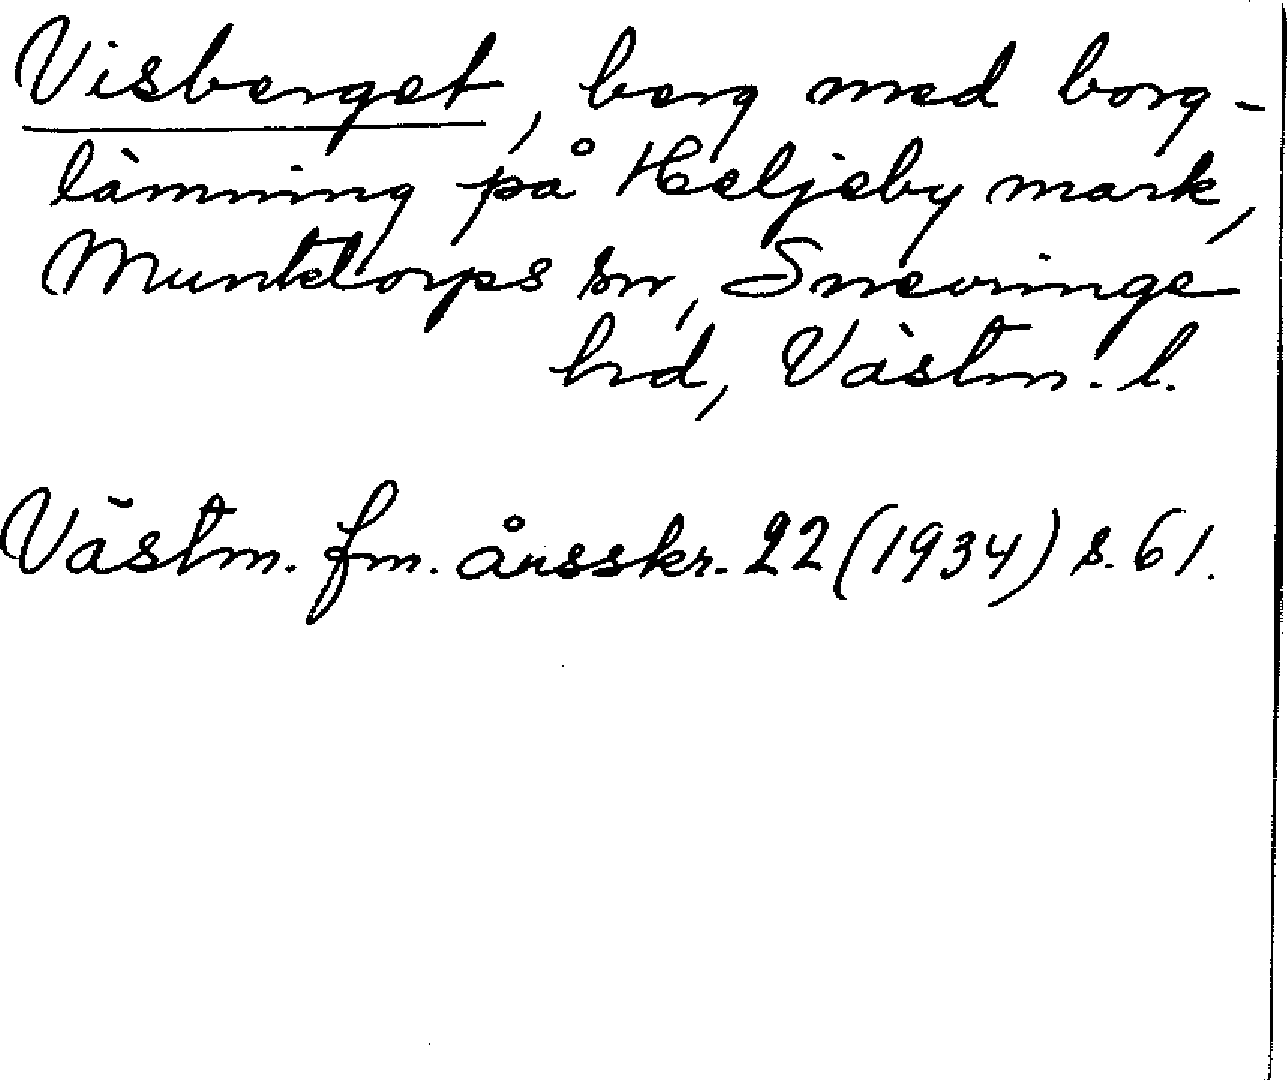 Visberget, berg med borg-
lämning på Heljeby mark,
Munktorps sn, Snevringe
hrd, Västm. l.
Västm. fm. årsskr. 22 (1934) s. 61.